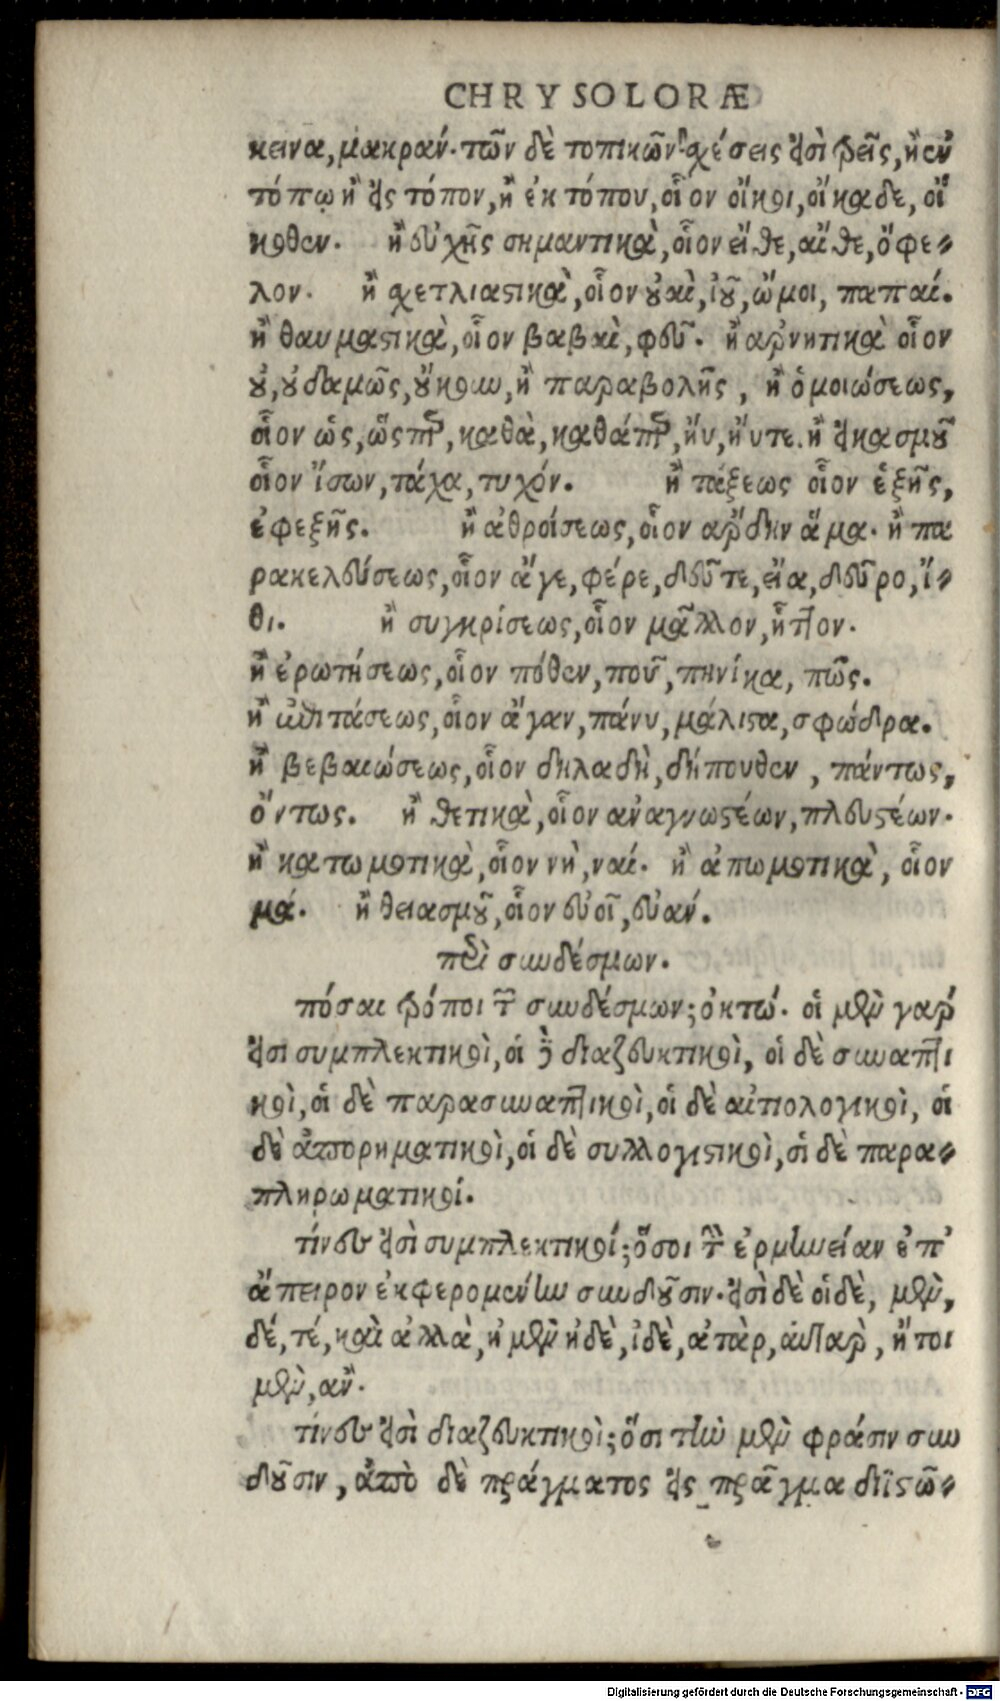 CHRYSOLORÆ
κεινα, μακράν. τῶν δὲ τοπικῶν χέσεις εἰσὶ τρεῖς, ἢ ἐν
τόπῳ ἢ εἰς τόπον, ἢ ἐκ τόπου, οἷον οἴκοι, οἴκαδε, οἴ
κοθεν. ἢ εὐχῆς σημαντικὰ, οἷον εἴθε, αἴθε, ὄφε-
λον. ἢ χετλιαστικὰ, οἷον οὐαὶ, ἰοῦ, ὤμοι, παπαί.
ἢ θαυμαστικὰ, οἷον βαβαὶ, φεῦ. ἢ αρνητικὰ οἷον
οὐ, οὐδαμῶς, οὔκουν, ἢ παραβολῆς, ἢ ὁμοιώσεως,
οἷον ὡς, ὥσπερ, καθὰ, καθάπερ, ἠύ, ἠύτε. ἢ εἰκασμοῦ
οἷον ἴσων, τάχα, τυχόν. ἢ τάξεως οἷον ἑξῆς,
ἐφεξῆς. ἢ ἀθροίσεως, οἷον αρδην ἅμα. ἢ πα
ρακελεύσεως, οἷον ἄγε, φέρε, δεῦτε, εἶα, δεῦρο, ἴ-
θι. ἢ συγκρίσεως, οἷον μᾶλλον, ἧττον.
ἢ ἐρωτήσεως, οἷον πόθεν, ποῦ, πηνίκα, πῶς.
ἢ ἐπιτάσεως, οἷον ἄγαν, πάνυ, μάλιστα, σφώδρα.
ἢ βεβαιώσεως, οἷον δηλαδὴ, δήπουθεν, πάντως,
ὄντως. ἢ θετικὰ, οἷον αναγνωστέων, πλευστέων.
ἢ κατωμοτικὰ, οἷον νὴ, ναί. ἢ ἀπωμοτικὰ, οἷον
μά. ἢ θειασμοῦ, οἷον εὐοῖ, εὐάν.
περὶ συνδέσμων.
πόσαι τρόποι τῶν συνδέσμων; ὀκτώ. οἱ μὲν γαρ
εἰσι συμπλεκτικοὶ, οἱ δὲ διαζευκτικοὶ, οἱ δὲ συναπτι
κοὶ, οἱ δὲ παρασυναπτικοὶ, οἱ δὲ αἰτιολογικοὶ, οἱ
δὲ ἀπορηματικοὶ, οἱ δὲ συλλογιστικοὶ, οἱ δὲ παρα-
πληρωματικοί.
τίνες εἰσὶ συμπλεκτικοί; ὅσοι τὴν ἑρμηνείαν ἐπ'
ἄπειρον ἐκφερομένην συνδοῦσιν. εἰσὶ δὲ οἱδὲ, μὲν,
δέ, τέ, καὶ ἀλλὰ, ἠ μὲν ἠδὲ, ἰδὲ, ἀτὰρ, αὐταρ, ἤτοι
μὲν, αν.
τίνες εἰσὶ διαζευκτικοὶ; ὅσι τὴν μὲν φράσιν συν
δοῦσιν, ἀπὸ δὲ πράγματος εἰς πρᾶγμα διϊστῶ-
Digitalisierung gefördert durch die Deutsche Forschungsgemeinschaft - DFG